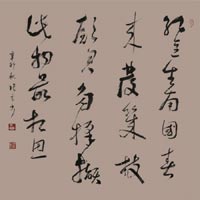 紅豆生南國春
来發幾枝
願君多採擷
此物最相思
辛卯秋